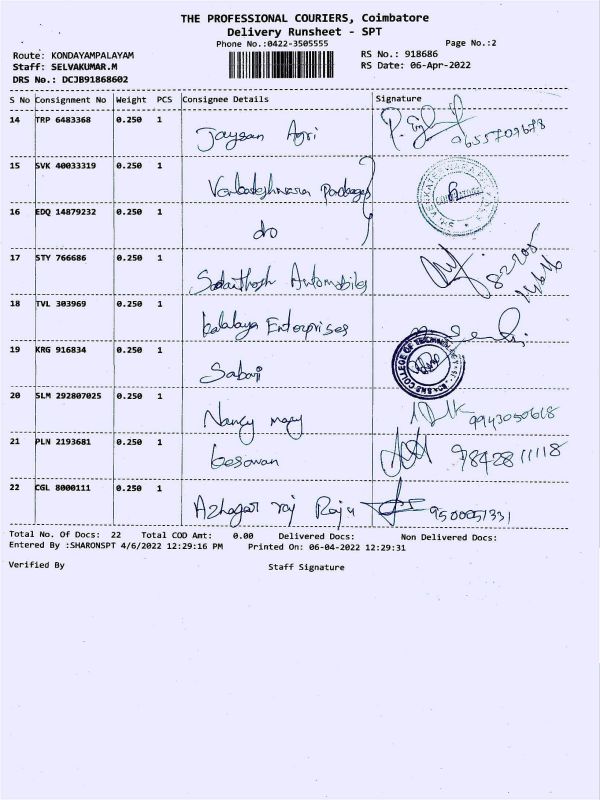 THE PROFESSIONAL COURIERS, Coimbatore
Delivery Runsheet - SPT
Phone No.:0422-3505555 Page No.:2
Route: KONDAYAMPALAYAM RS No.: 918686
Staff: SELVAKUMAR.M RS Date: 06-Apr-2022
DRS No.: DCJB91868602
S No Consignment No Weight PCS Consignee Details Signature
14 TRP 6483368 0.250 1 Jaysan Agri 9655709678
15 SVK 40033319 0.250 1
16 EDQ 14879232 0.250 1 do
17 STY 766686 0.250 1 Automobiles
18 TVL 303969 0.250 1 Enterprises
19 KRG 916834 0.250 1 Sabari
20 SLM 292807025 0.250 1 Nancy mary 9943050618
21 PLN 2193681 0.250 1 9842811118
22 CGL 8000111 0.250 1 Azhagar raj Raju 9500051331
Total No. Of Docs: 22 Total COD Amt: 0.00 Delivered Docs: Non Delivered Docs:
Entered By :SHARONSPT 4/6/2022 12:29:16 PM Printed On: 06-04-2022 12:29:31
Verified By Staff Signature